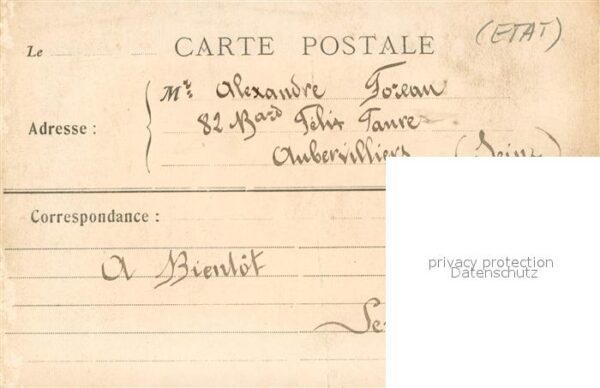 (ETAT)
Le
CARTE POSTALE
Mr Alexandre Foreau
Adresse :
82 Bard Félix Faure
Aubervilliers (Seine)
Correspondance :
privacy protection
Datenschutz
A Bientôt